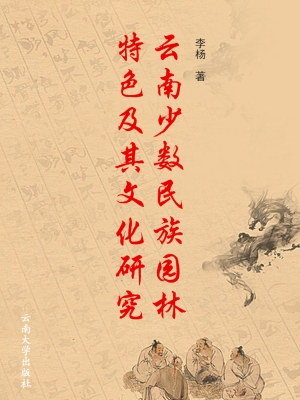 云南少数民族园林
特色及其文化研究
李杨 著
云南大学出版社